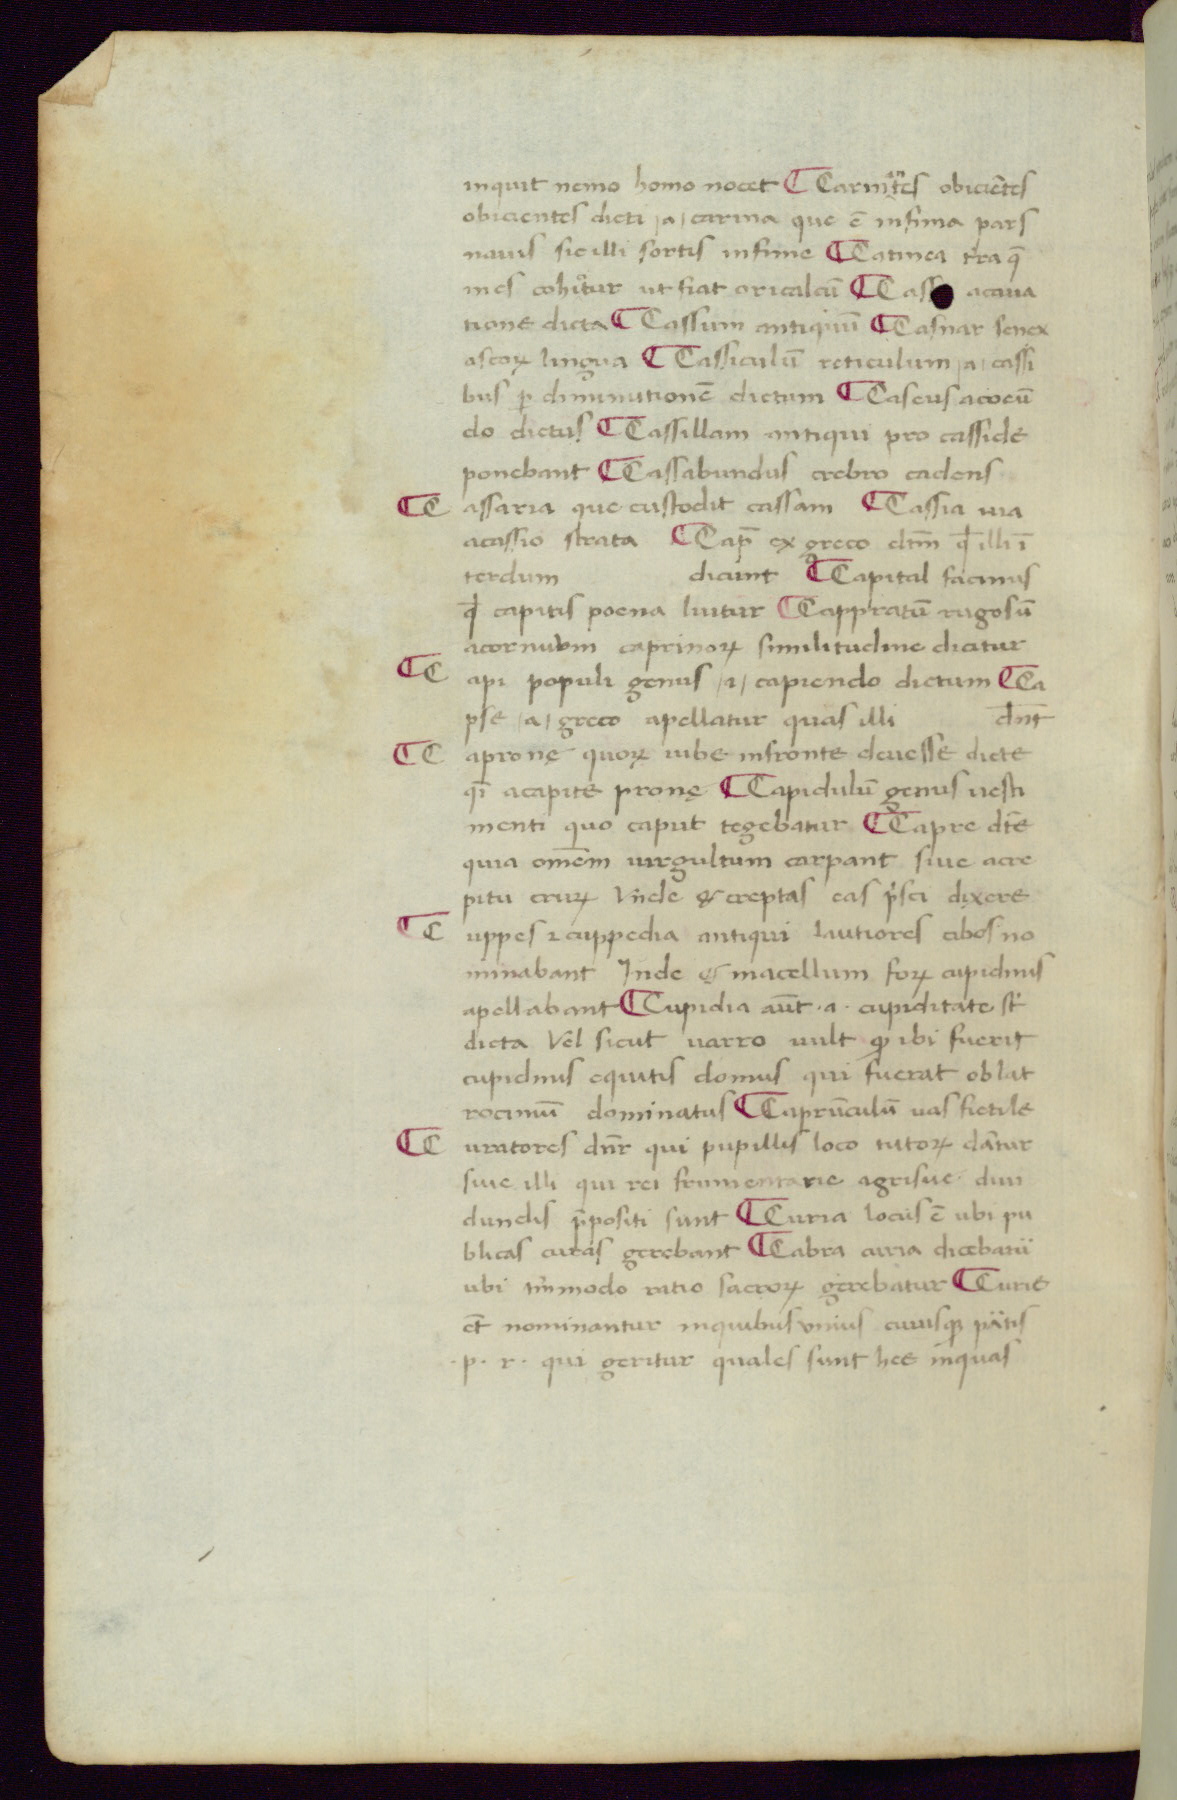 inquit nemo homo nocet ¶ Carinãtes obiciẽtes
obicientes dicti /a/ carina que ẽ infima pars
navis sic illi sortis infime ¶ Catinea tra q̄
in es cohiᵗur ut fiat oricalcũ ¶ Cass acaua
tione dicta ¶ Cassum antiqui ¶ Casnar senex
ascoꝝ lingua ¶ Cassiculũ reticulum /a/ cassi
bus ꝑ diminutionẽ dictum ¶ Caseus acoeũ
do dictus ¶ Cassillam antiqui pro casside
ponebant ¶ Cassabundus crebro cadens
¶ C assaria que custodit cassam ¶ Cassia uia
acassio strata ¶ Cap̄ ex greco dtm̄ qđ illi ĩ
terdum dicunt ¶ Capital facinus
qđ capitis poena luitur ¶ Cappratũ rugosũ
acornuum caprinoꝝ similitudine dicitur
¶ C api populi genus /a/ capiendo dictum ¶ Ca
pse /a/ greco apellatur quas illi dn̄t
¶ C apronę quoꝝ iube infronte deuesse dicte
qĩ acapite pronę ¶ Capidulũ genus uesti
menti quo caput tegebatur ¶ Capre dt̄e
quia om̄em uirgultum carpant siue acre
pitu cruꝝ Vñde & creptas eas pͥsci dixere
¶ C uppes ⁊ cuppedia antiqui lautiores cibos no
minabant Inde & macellum foꝝ cupidinis
apellabant ¶ Cupidia aũt ·a· cupiditate st̃
dicta Vel̃ sicut uarro uult ꝙ ibi fuerit
cupidinis equitis domus qui fuerat oblat
rociniũ dominatus ¶ Caprũculũ uas fictile
¶ C uratores dn̄r qui pupillis loco tutoꝝ dãtur
siue illi qui rei frumentarie agrisue diui
dundis p̄positi sunt ¶ Curia locus ẽ ubi pu
blicas curas gerebant ¶ Cabra curia dicebatũ
ubi tm̃modo ratio sacroꝝ gerebatur ¶ Curie
et̃ nominantur inquibus vnius cuiusqꝫ pãtis
·p· r· qui geritur quales sunt hee inquas